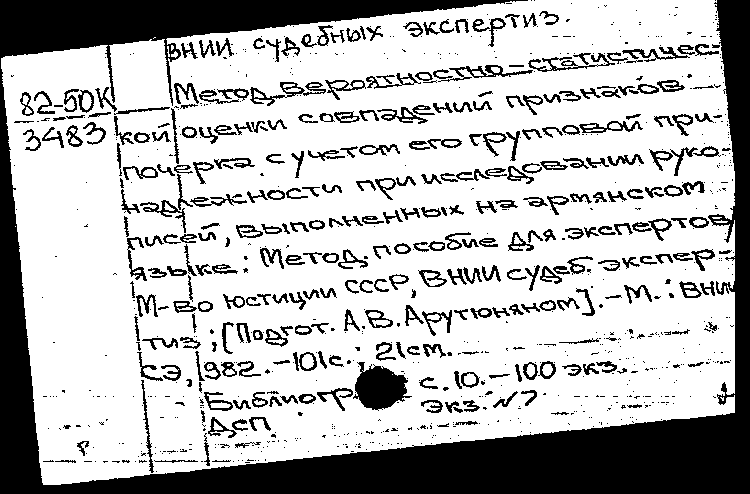 ВНИИ судебных экспертиз.
82-50К
3483
Метод вероятностно-статистичес-
кой оценки совпадений признаков
почерка с учетом его групповой при-
надлежности при исследовании руко-
писей, выполненных на армянском
языке: Метод. пособие для экспертов/
М-во юстиции СССР, ВНИИ судеб. экспер-
тиз; [Подгот. А.В.Арутюняном].-М.: ВНИИ
СЭ, 982.-101с.; 21см.
Библиогр с.10.-100 экз.
Экз. N7
ДСП